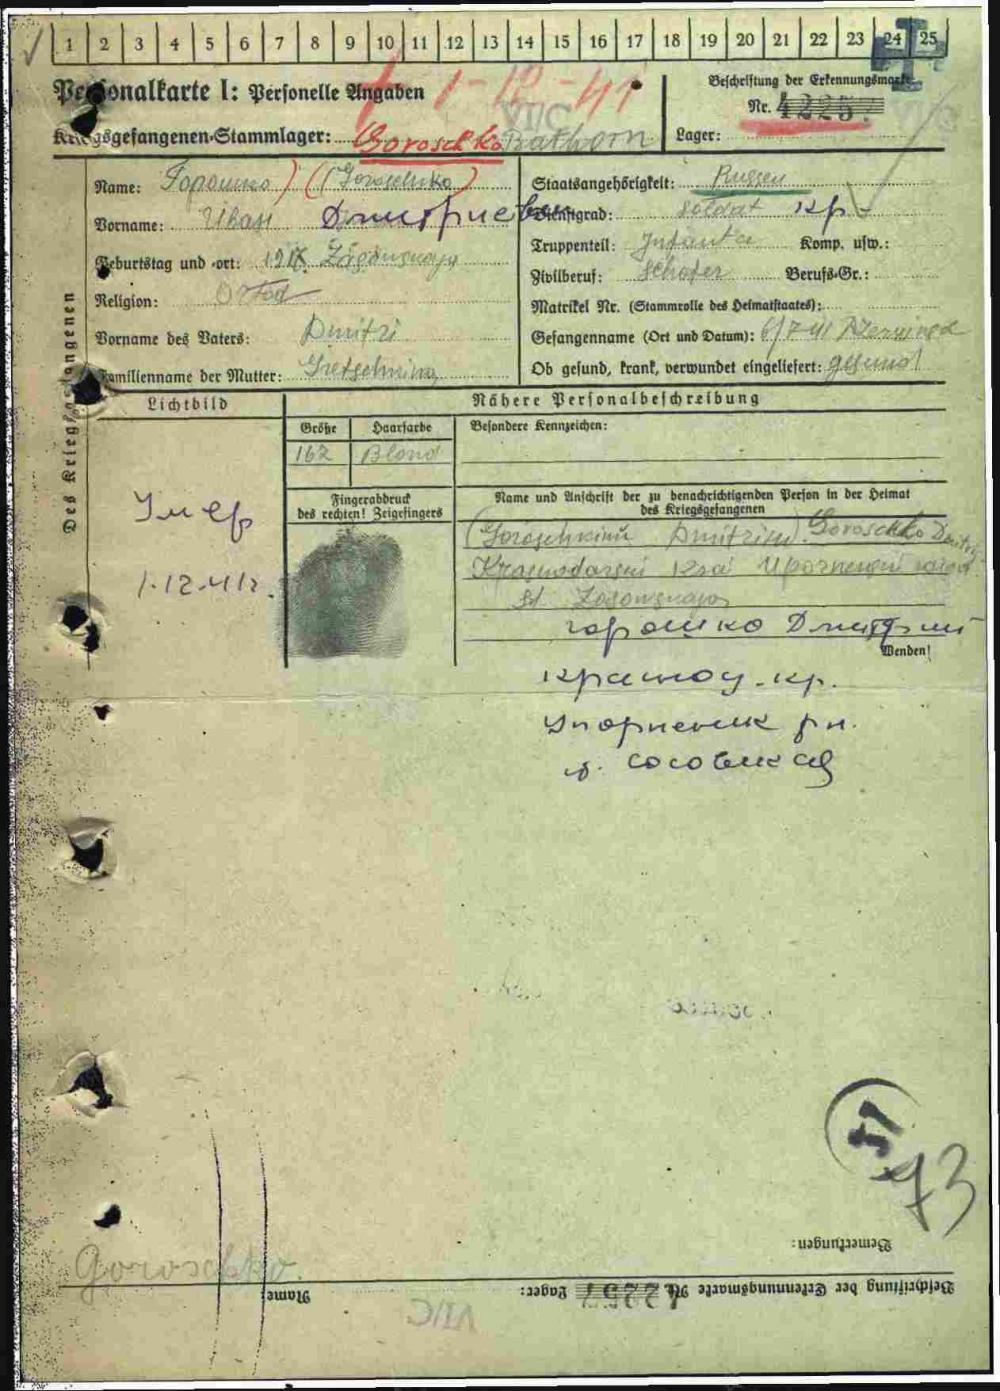 1 2 3 4 5 6 7 8 9 10 11 12 13 14 15 16 17 18 19 20 21 22 23 24 25
Personalkarte I: Personelle Angaben
1-12-41
VI/C
Beschriftung der Erkennungsmarke
Nr. 42257.
Kriegsgefangenen-Stammlager: Goroschko Bathorn
Lager:
Des Kriegsgefangenen
Name: Горошко) (Goroschko)
Vorname: Иван Дмитриевич
Geburtstag und -ort: 1917
Religion: Ortod
Vorname des Vaters: Dmitri
Familienname der Mutter:
Staatsangehörigkeit: Russen
Dienstgrad: Soldat кр
Truppenteil: Infanta Komp. usw.:
Zivilberuf: Schofer Berufs-Gr.:
Matrikel Nr. (Stammrolle des Heimatstaates):
Gefangenname (Ort und Datum): 6/7-41
Ob gesund, krank, verwundet eingeliefert: gesund
Lichtbild
Nähere Personalbeschreibung
Größe Haarfarbe Besondere Kennzeichen:
162 Blond
Fingerabdruck
des rechten! Zeigefingers
Name und Anschrift der zu benachrichtigenden Person in der Heimat
des Kriegsgefangenen
Умер
1.12.41г.
Dmitriu) Goroschko Dmitri
Krasnodarski Krai
st.
горошко Дмитрий
Wenden!
краснод. кр.
Упорненск рн.
с.
51
43
Bemerkungen:
Goroschko.
Name:
Beschriftung der Erkennungsmarke Nr. 42257 Lager:
VI/C